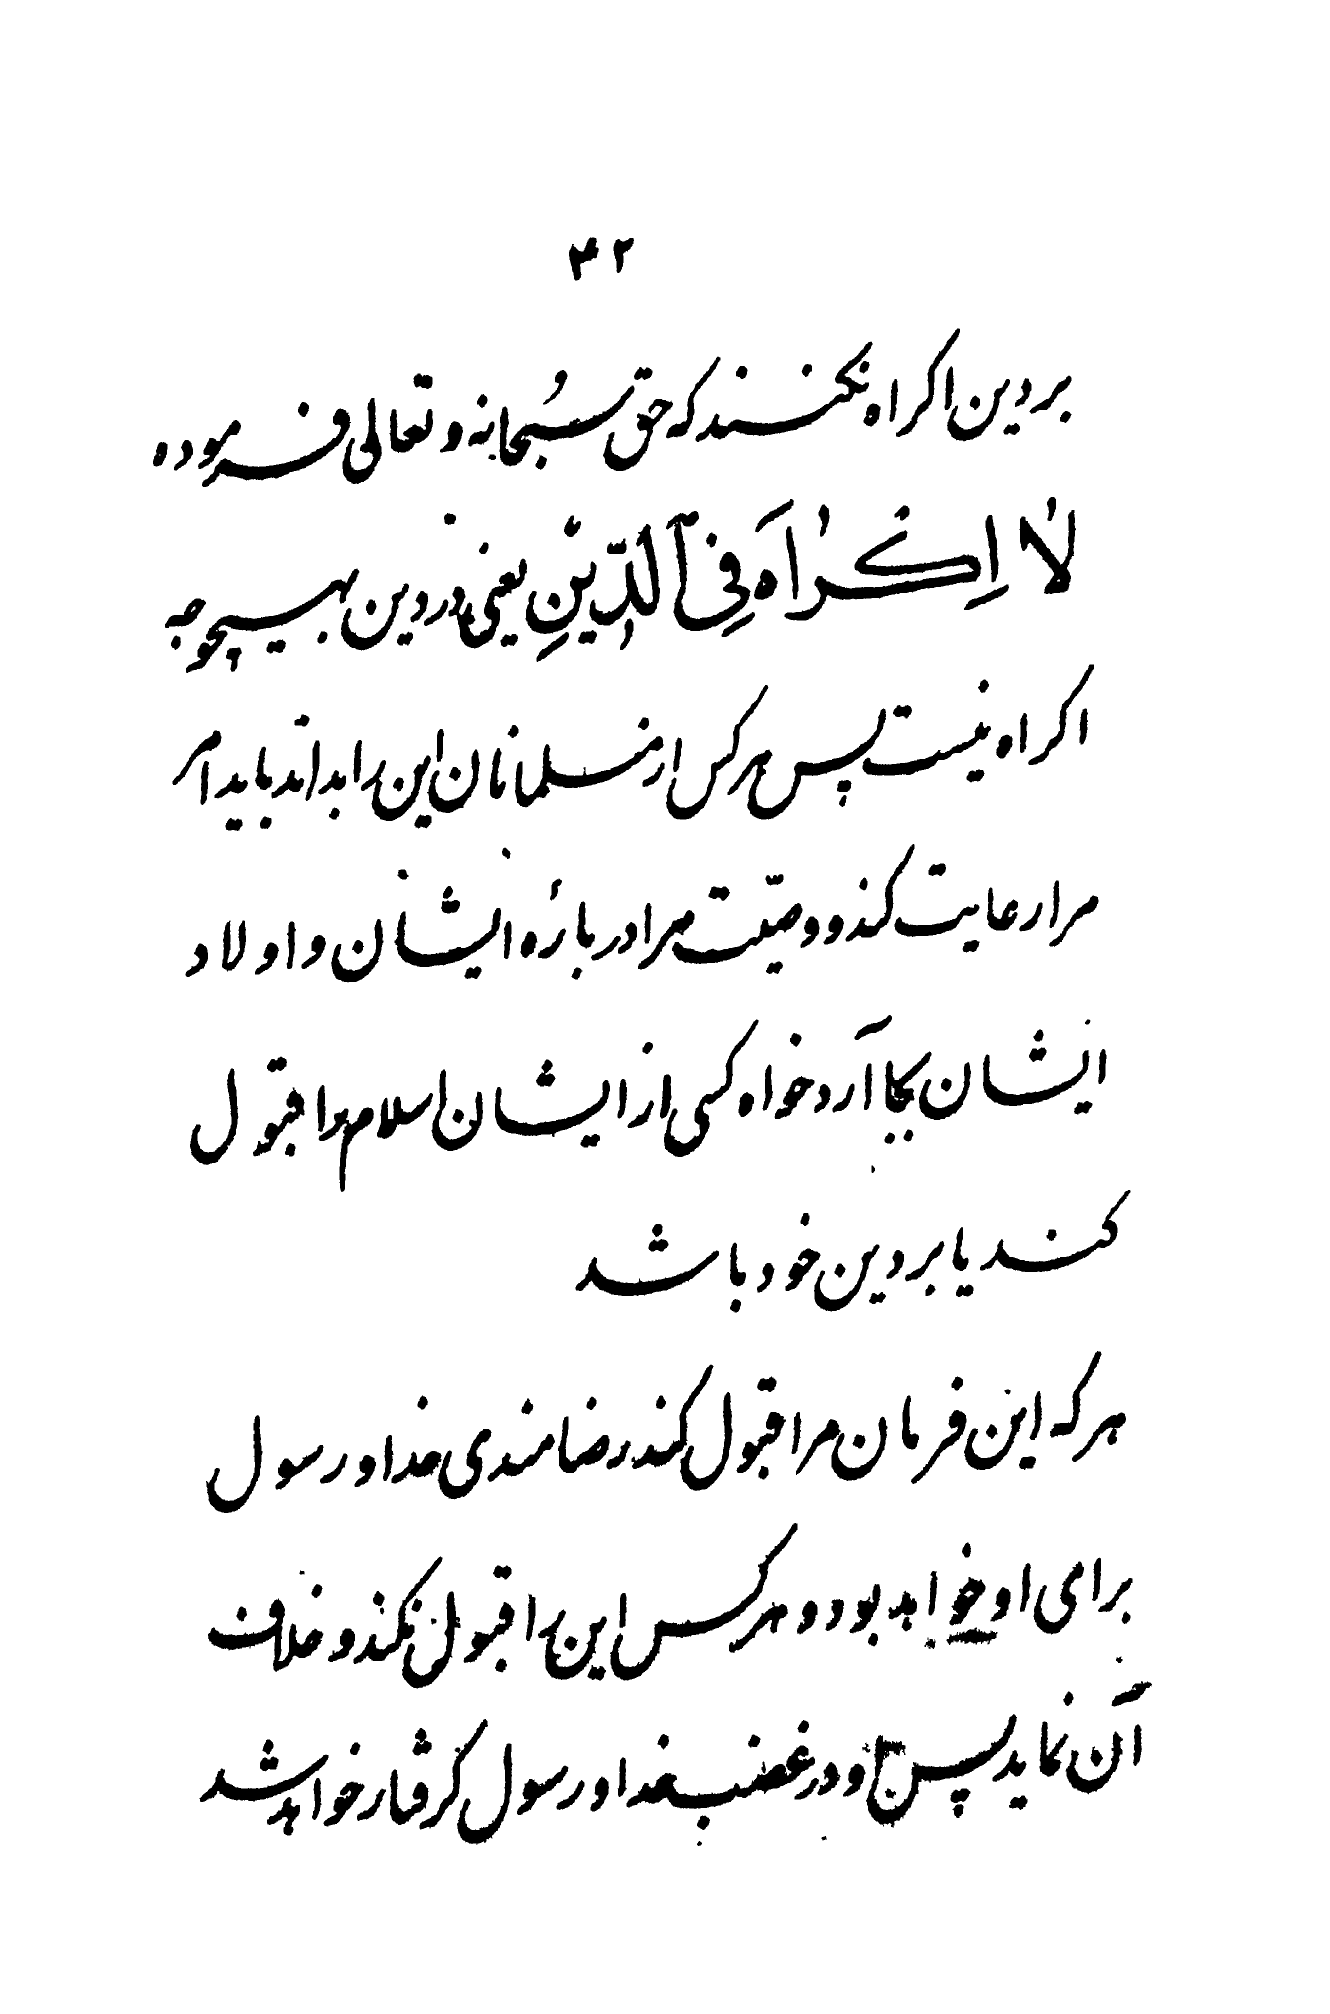 ۴۲
بر دین اکراه نکنند که حق سُبحانه و تعالی فرموده
لَا اِکْرَاهَ فِی الدِّیْنِ یعنی در دین بهیچوجه
اکراه نیست پس هر کس از مسلمانان این را بداند باید امر
مرا رعایت کند و وصیّت مرا در بارۀ ایشان و اولاد
ایشان بجا آرد خواه کسی از ایشان اسلام را قبول
کند یا بر دین خود باشد
هر که این فرمان مرا قبول کند رضامندی خدا و رسول
برای او خواهد بود و هر کس این را قبول نکند و خلاف
آن نماید پس او در غضب خدا و رسول گرفتار خواهد شد